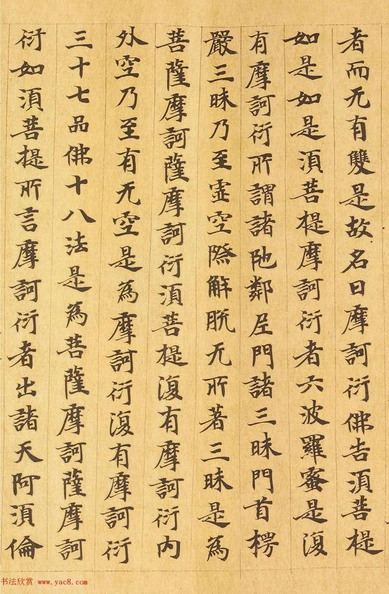 者而无有雙是故名曰摩訶衍佛告須菩提
如是如是須菩提摩訶衍者六波羅蜜是復
有摩訶衍所謂諸陁鄰尼門諸三昧門首楞
嚴三昧乃至虛空際解脫无所著三昧是為
菩薩摩訶薩摩訶衍須菩提復有摩訶衍内
外空乃至有无空是為摩訶衍復有摩訶衍
三十七品佛十八法是為菩薩摩訶薩摩訶
衍如須菩提所言摩訶衍者出諸天阿須倫
书法欣赏 www.yac8.com